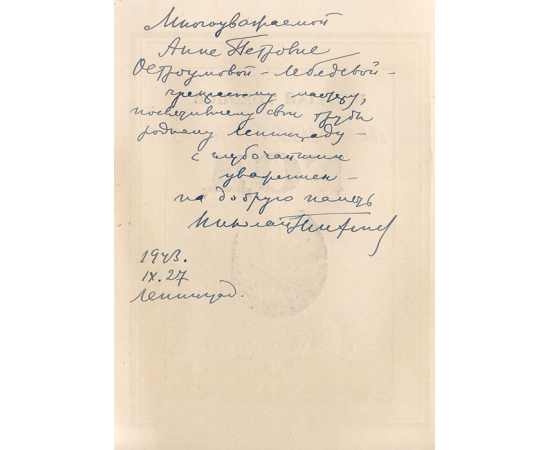 Многоуважаемой
Анне Петровне
Остроумовой-Лебедевой -
прекрасному мастеру,
посвятившему свои труды
родному Ленинграду -
с глубочайшим
уважением -
на добрую память
Николай Тихонов
1943.
IX.27
Ленинград.